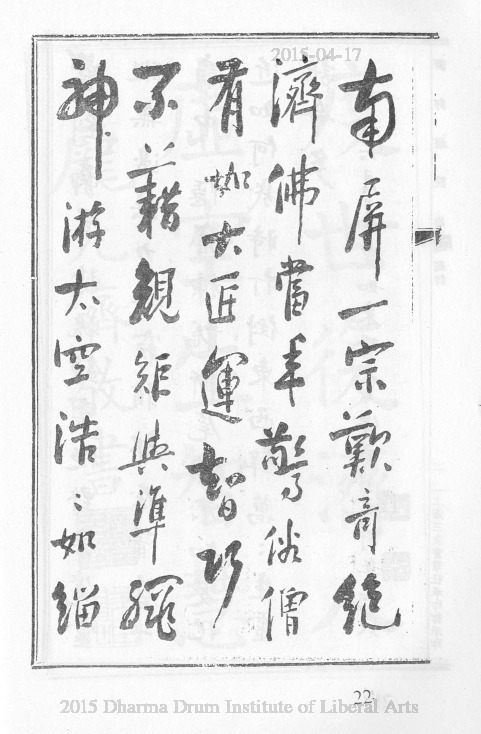 2015-04-17
南屏一宗歎奇絕
濟佛當年驚俗僧
有如大匠運智巧
不藉規矩與準繩
神游太空浩〻如
22
2015 Dharma Drum Institute of Liberal Arts